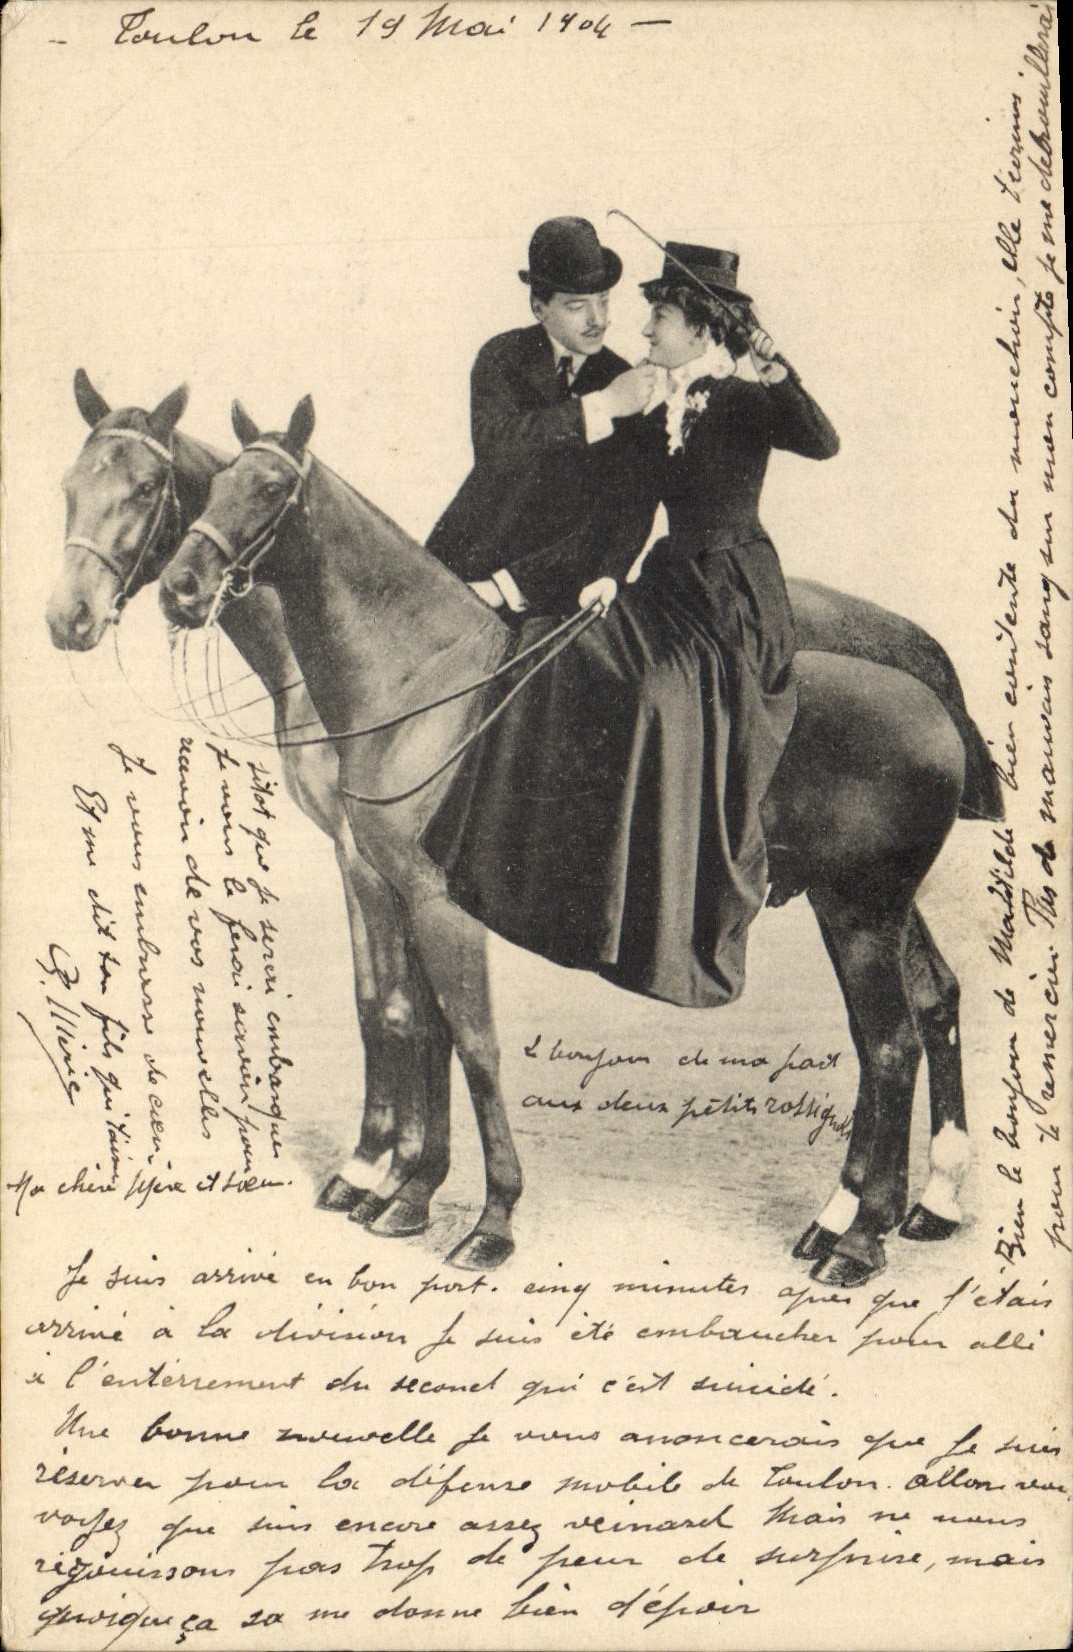 Toulon le 19 Mai 1904
Ma chère Mère et Sœur.
Je suis arrivé en bon port. cinq minutes apres que j'étais
arrivé à la division je suis été embaucher pour allé
à l'enterrement du second qui c'est suicidé.
Une bonne nouvelle je vous anoncerais que je suis
réserver pour la défense mobile de Toulon. allons vou
voyez que suis encore assez veinard Mais ne nous
réjouissons pas trop de peur de surprise, mais
quoique ça sa me donne bien d'époir
sitot que je serai embarquer
je vous le ferai savoir pour
recevoir de vos nouvelles
Je vous embrasse de cœur
Et me dit ton fils qui t'aime
Bien le bonjour de Mathilde bien contente du mouchoir, elle t'écrirais
pour te remercier. Pas de mauvais sang sur mon compte je me debrouillerai
Le bonjour de ma part
aux deux pétits rossignols